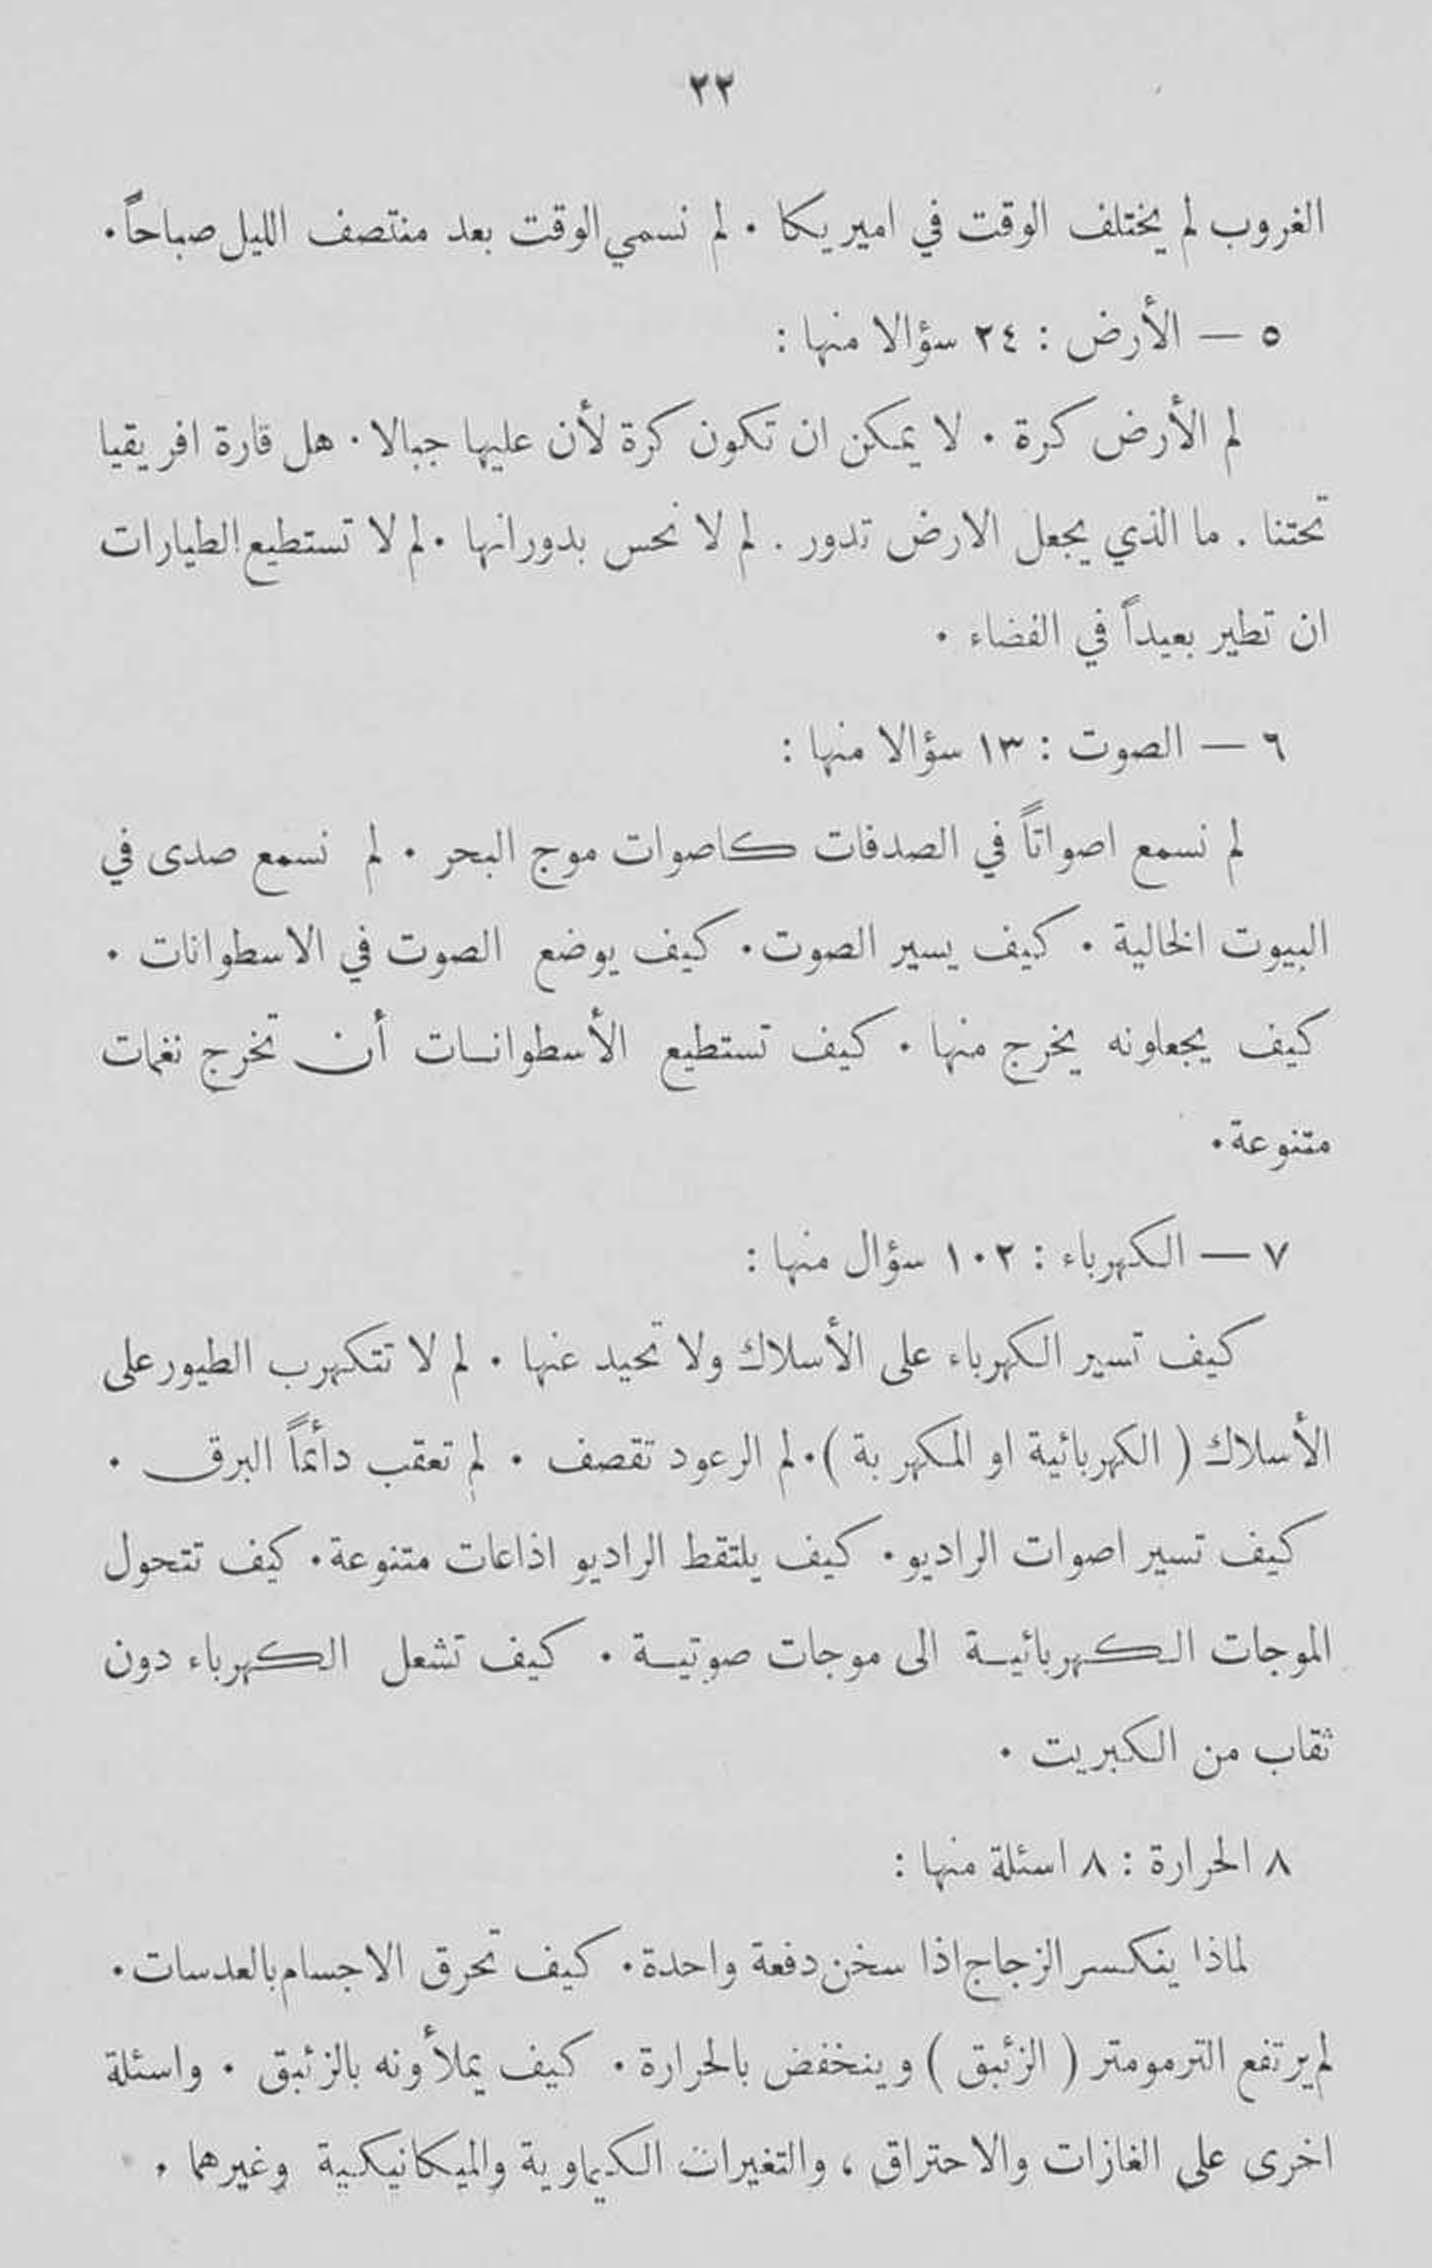 ٢٢
الغروب لم يختلف الوقت في اميريكا ٠ لم نسمي الوقت بعد منتصف الليل صباحاً ٠
٥ — الأرض : ٢٤ سؤالا منها :
لم الأرض كرة ٠ لا يمكن ان تكون كرة لأن عليها جبالا ٠ هل قارة افريقيا
تحتنا . ما الذي يجعل الارض تدور . لم لا نحس بدورانها ٠ لم لا تستطيع الطيارات
ان تطير بعيداً في الفضاء ٠
٦ — الصوت : ١٣ سؤالا منها :
لم نسمع اصواتاً في الصدفات كاصوات موج البحر ٠ لم نسمع صدى في
البيوت الخالية ٠ كيف يسير الصوت ٠ كيف يوضع الصوت في الاسطوانات ٠
كيف يجعلونه يخرج منها ٠ كيف تستطيع الأسطوانات أن تخرج نغمات
متنوعة ٠
٧ — الكهرباء : ١٠٢ سؤال منها :
كيف تسير الكهرباء على الأسلاك ولا تحيد عنها ٠ لم لا تتكهرب الطيور على
الأسلاك ( الكهربائية او المكهربة ) ٠ لم الرعود تقصف ٠ لم تعقب دأئماً البرق ٠
كيف تسير اصوات الراديو ٠ كيف يلتقط الراديو اذاعات متنوعة ٠ كيف تتحول
الموجات الكهربائية الى موجات صوتية ٠ كيف تشعل الكهرباء دون
ثقاب من الكبريت ٠
٨ الحرارة : ٨ اسئلة منها :
لماذا ينكسر الزجاج اذا سخن دفعة واحدة ٠ كيف تحرق الاجسام بالعدسات ٠
لم يرتفع الترمومتر ( الزئبق ) وينخفض بالحرارة ٠ كيف يملأونه بالزئبق ٠ واسئلة
اخرى على الغازات والاحتراق ، والتغيرات الكيماوية والميكانيكية وغيرهما .